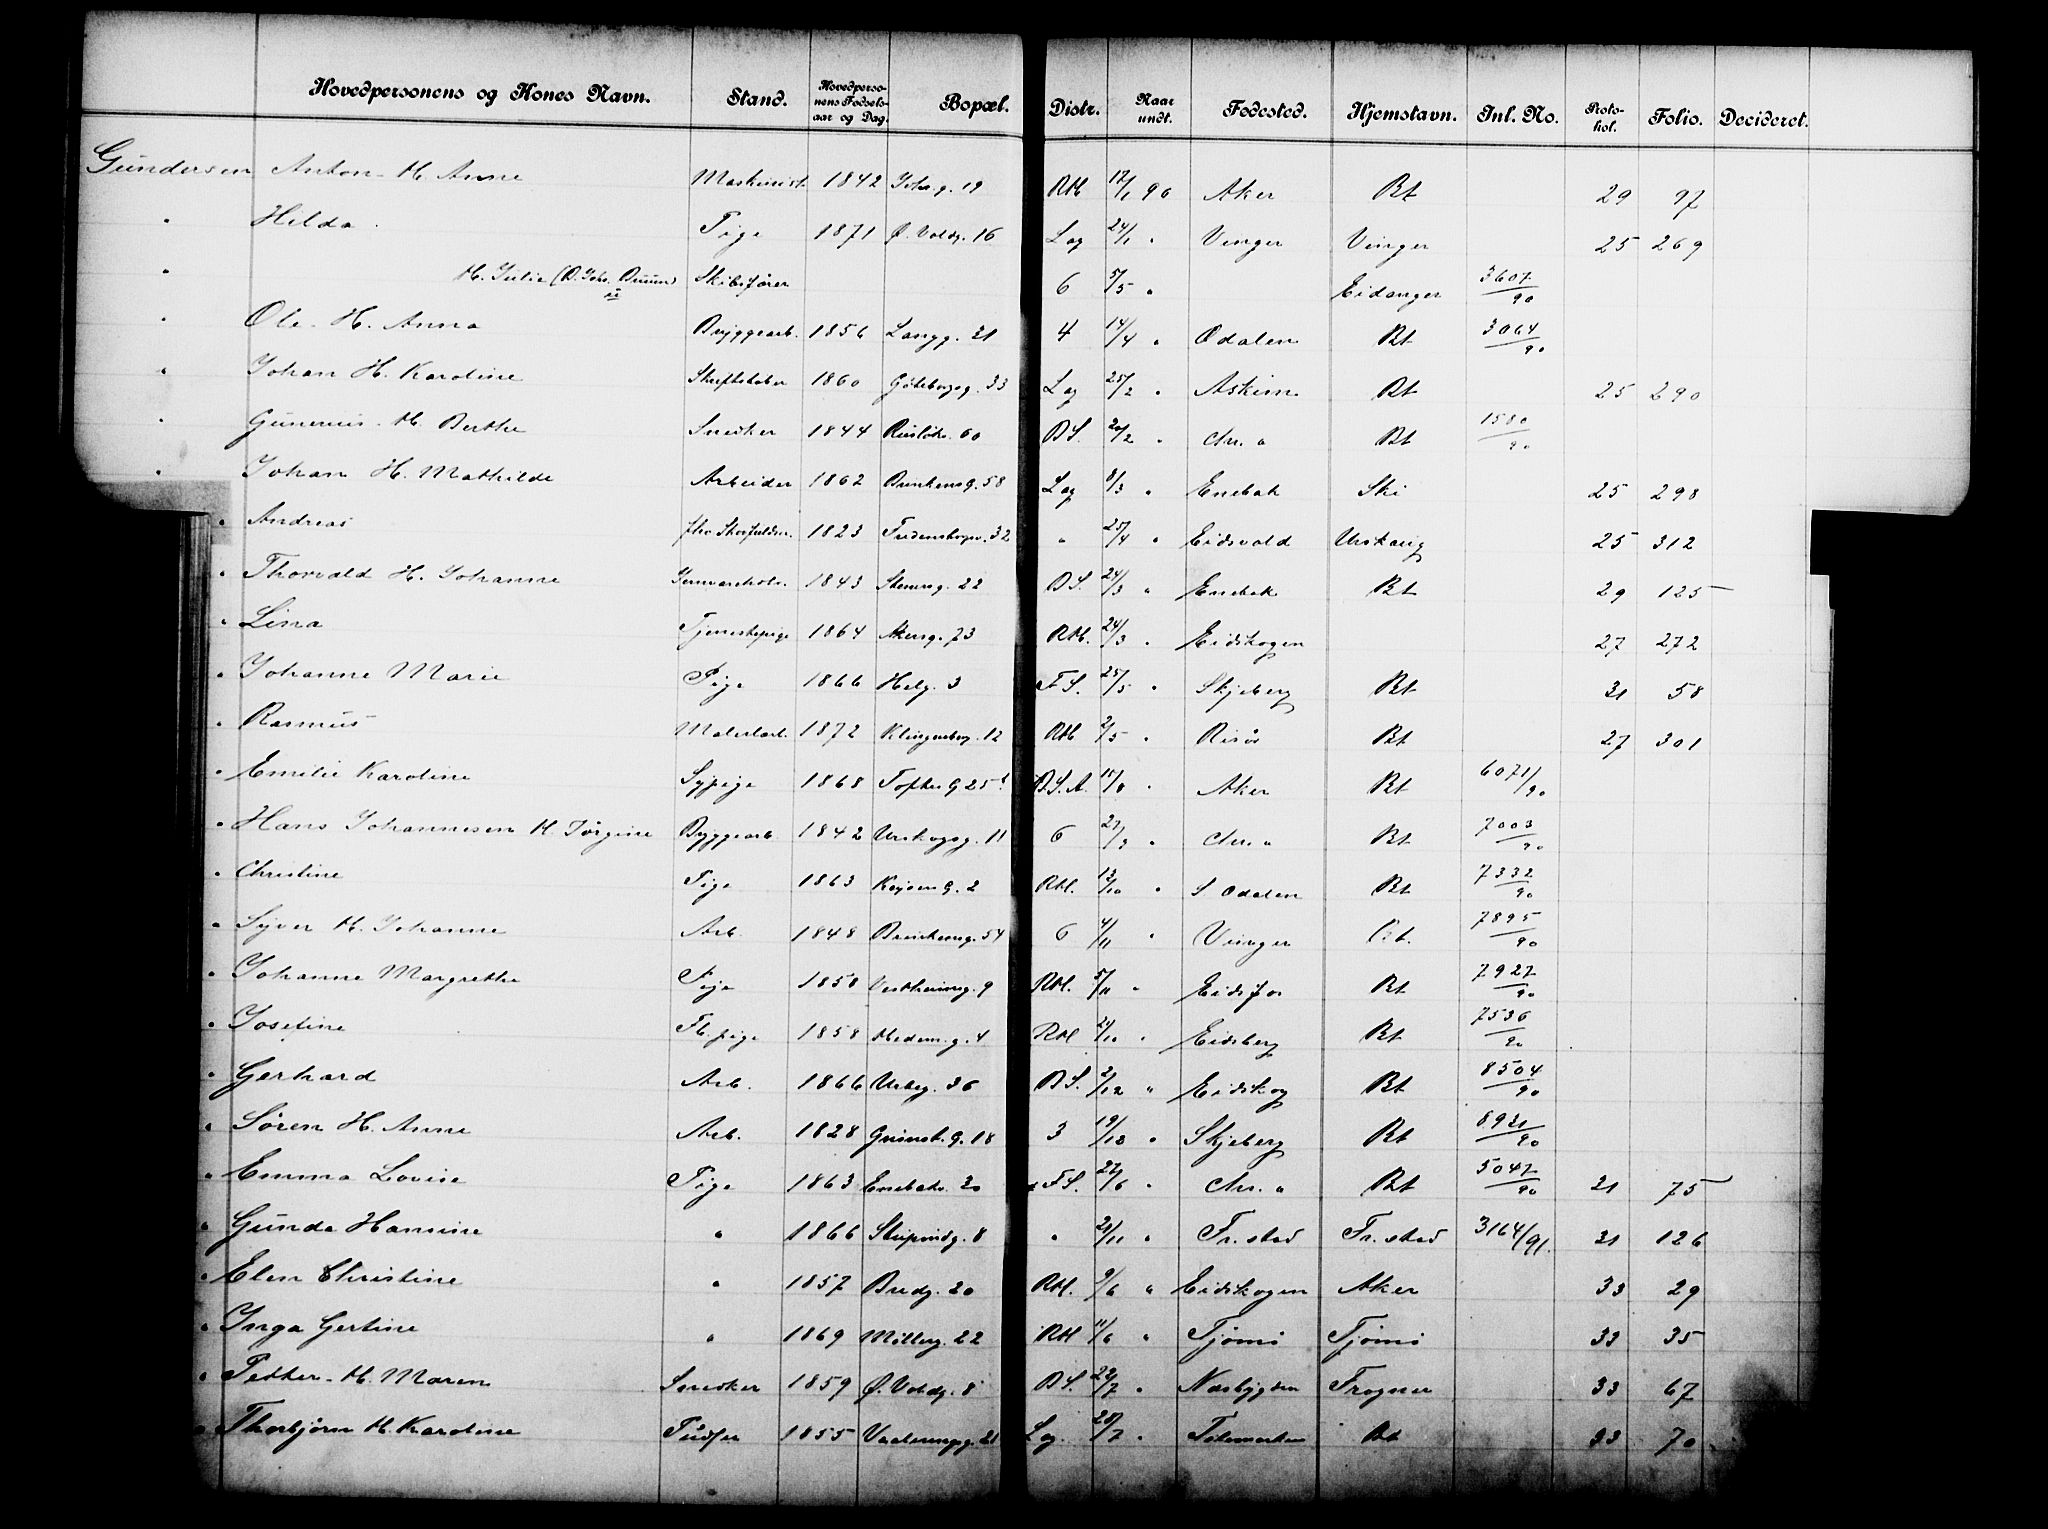 Hovedpersonens og Kones Navn. Stand. Hovedperso-nens Fødsels-aar og Dag. Bopæl. Distr. Naar undt. Fødested. Hjemstavn. Inl. No. Proto-kol. Folio. Decideret.
Gundersen Anton - H. Anne Maskinist 1842 19 RM 17/1 90 Aker Bt 29 97
" Hilda Pige 1871 Ø. Voldg. 16 Lag 24/1 " Vinger Vinger 25 269
" H. Julie Skibsfører 6 5/5 " Eidanger 3607/90
" Ole - H. Anna Bryggearb. 1856 Langg. 21 4 14/4 " Odalen Bt 3064/90
" Johan H. Karoline 1860 Göteborgg. 33 Lag 25/2 " Askim Bt 25 290
" Gunerius - H. Berthe Snedker 1844 60 BS. 20/2 " Chr. a Bt 1580/90
" Johan H. Mathilde Arbeider 1862 Brinkensg. 58 Lag 8/3 " Enebak Ski 25 298
" Andreas 1823 32 " 25/4 " Eidsvold Urskoug 25 312
" Thorvald H. Johanne 1843 Stensg. 22 BS. 24/3 " Enebak Bt 29 125
" Lina Tjenestepige 1864 Akersg. 73 RM. 24/3 " Eidskogen 27 272
" Johanne Marie Pige 1866 Helg. 3 FS. 25/5 " Skjeberg Bt 31 58
" Rasmus Malerlærl. 1872 Klingenbrg. 12 RM 2/5 " Risör Bt 27 301
" Emilie Karoline Sypige 1868 Toftes G 25 B.S.A. 11/8 " Aker Bt 6071/90
" Hans Johannesen H. Jørgine Byggearb. 1842 Urskogsg. 11 6 27/9 " Chr. a Bt 7003/90
" Christine Pige 1863 Keysers G. 2 RM. 13/10 " S Odalen Bt 7332/90
" Syver H. Johanne Arb. 1848 Brinkensg. 54 6 4/11 " Vinger Bt. 7895/90
" Johanne Margrethe Pige 1858 Vestheimsg. 9 RM. 5/11 " Eidsfos Bt 7927/90
" Josefine Fb. pige 1858 4 RM 21/10 " Eidsberg Bt 7536/90
" Gerhard Arb. 1866 Urteg. 36 BS. 2/12 " Eidskog Bt 8504/90
" Søren H. Anne Arb. 1828 Grimst. G. 18 3 19/12 " Skjeberg Bt 8931/90
" Emma Lovise Pige 1863 Enebakv. 20 FS. 27/6 " Chr. a Bt 5047/90 31 75
" Gunda Hansine " 1866 8 " 21/11 " Fr. stad Fr. stad 3164/91. 31 126
" Elen Christine " 1857 Bredg. 20 RM. 9/6 " Eidskogen Aker 33 29
" Inga Gertine " 1869 Møllerg. 22 RM 11/6 " Tjømö Tjømö 33 35
" Petter - H. Maren Snedker 1859 Ø. Voldg. 8 BS. 22/7 " Næsbygden Frogner 33 67
" Thorbjørn H. Karoline Pudser 1855 Vaalerengg. 21 Lag. 28/7 " Telemarken Bt 33 70